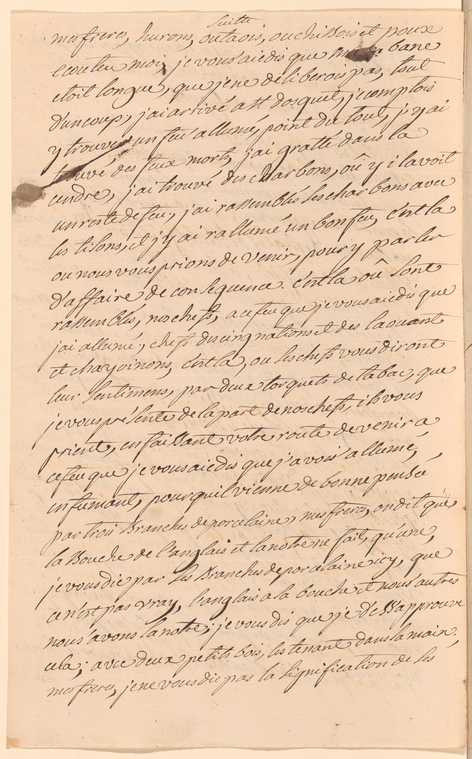 Suitte
mes freres, hurons, outaois, ouchibois et poux
ecoutez moi, je vous ai edis que cabane
etoit longue, que je ne deliberois pas, tout
d'un coup, j'ai arrivé a st dosquet, je comptois
y trouver un feu allumé, point du tout, j'y ai
trouvé des feux morts, j'ai gratté dans la
cendre, j'ai trouvé des charbons, où y i lavoit
un reste de feu, j'ai rassemblés les charbons avec
les tisons, et j'y ai rallumé un bon feu, c'est la
ou nous vous prions de venir, pour y parler
d'affaire de consequence. c'est la où sont
rassemblés, nos chefs, a ce feu que je vous ai edis que
j'ai allumé, chefs des cinq nations et des laouant
et chayoinons, c'est la, ou les chefs vous diront
leur sentimens, par deux torquets de tabac, que
je vous présente de la part de nos chefs, ils vous
prient, en faissant votre route de venir a
ce feu que je vous ai edis que j'avois allumé,
en fumant, pourquil vienne de bonne pensée
par trois Branches de porcelaine, mes freres, on dit que
la Bouche de l'anglais et la notre ne fait, qu'une,
je vous dis par les Branches de porcelaine icy, que
ce n'est pas vray, l'anglais a la bouche et nous autres
nous avons la notre; je vous dis que je d'ésapprouve
cela; avec deux petits bois, les tenant dans la main.
mes freres, je ne vous dis pas la signification de les